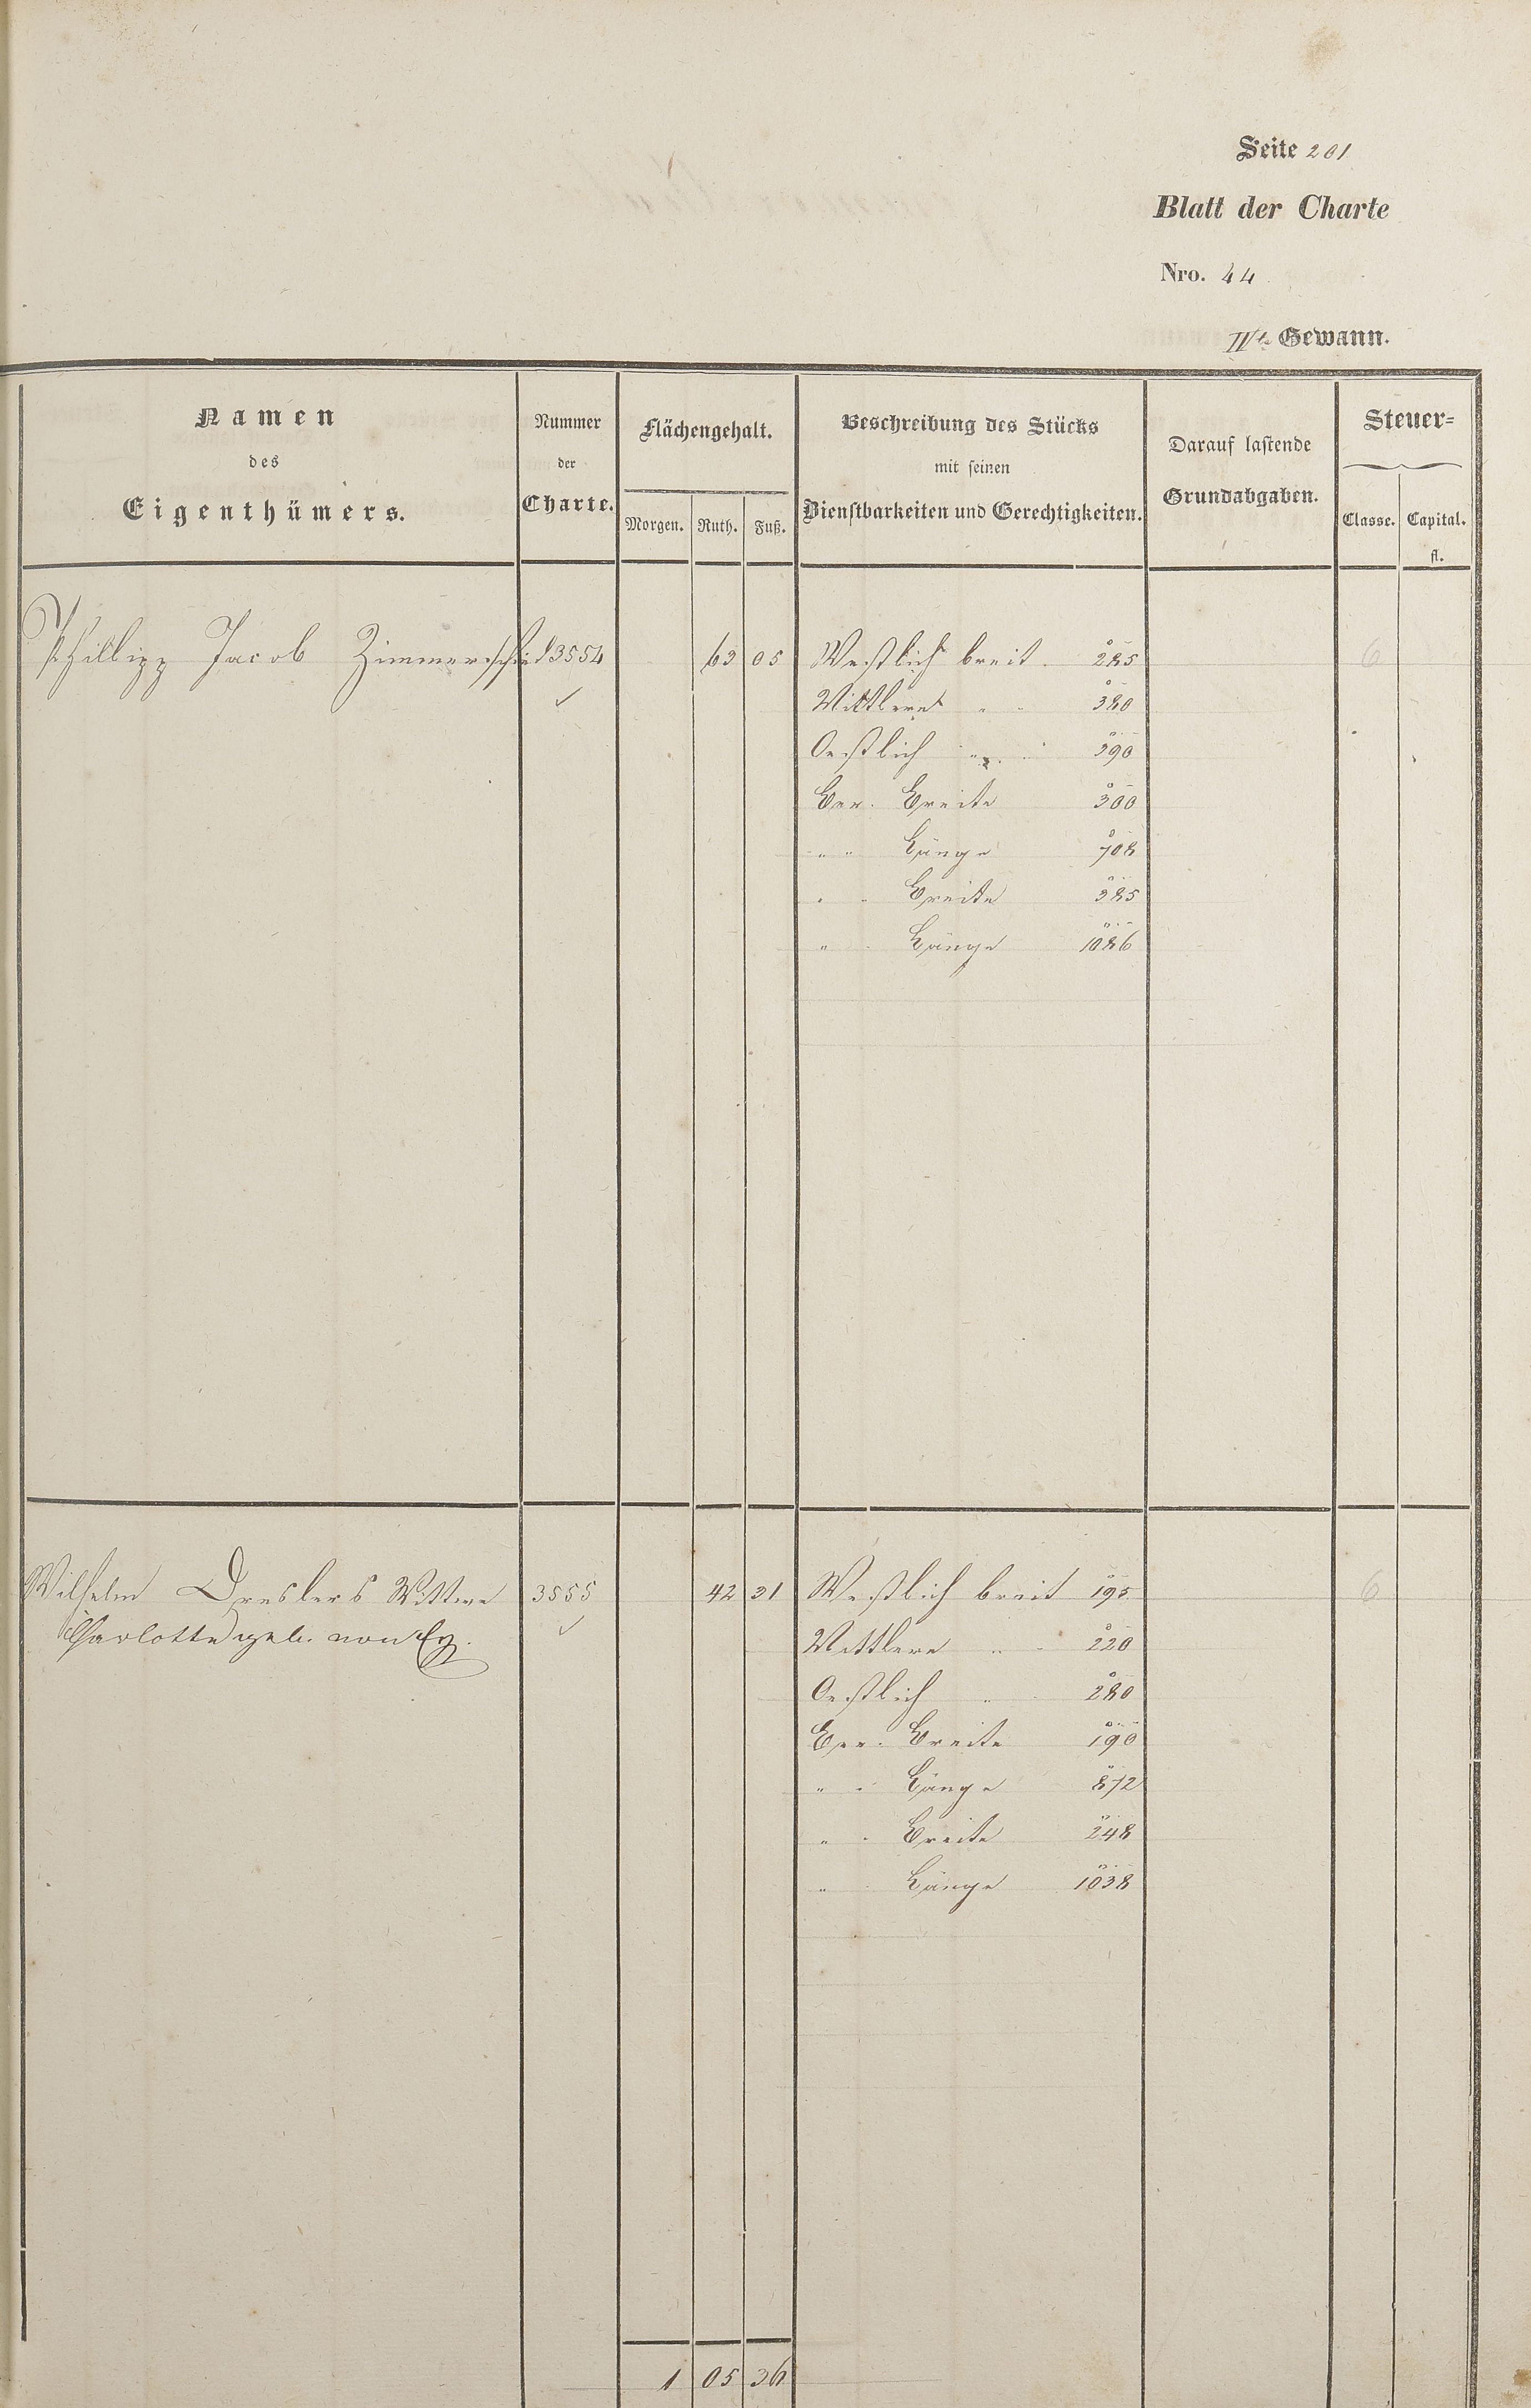 Seite 201
Blatt der Charte
Nro. 44
IIte Gewann.
Namen des Eigenthümers.
Nummer der Charte.
Flächengehalt.
Morgen. Ruth. Fuß.
Beschreibung des Stücks mit seinen Dienstbarkeiten und Gerechtigkeiten.
Darauf lastende Grundabgaben.
Steuer=
Classe. Capital. fl.
Phillipp Jacob Zimmerschied 3554 63 05 Westlich breit. 285 6
Mittlere " " 380
Oestlich " 390
Ber. Breite 300
" " Länge 708
" " Breite 385
" Länge 1086
Wilhelm Dreslers Wittwe 3555 42 31 Westlich breit 195 6
Charlotte geb. von
Mittlere " 220
Oestlich " 280
Ber. Breite 190
" " Länge 872
" " Breite 248
" Länge 1038
1 05 36